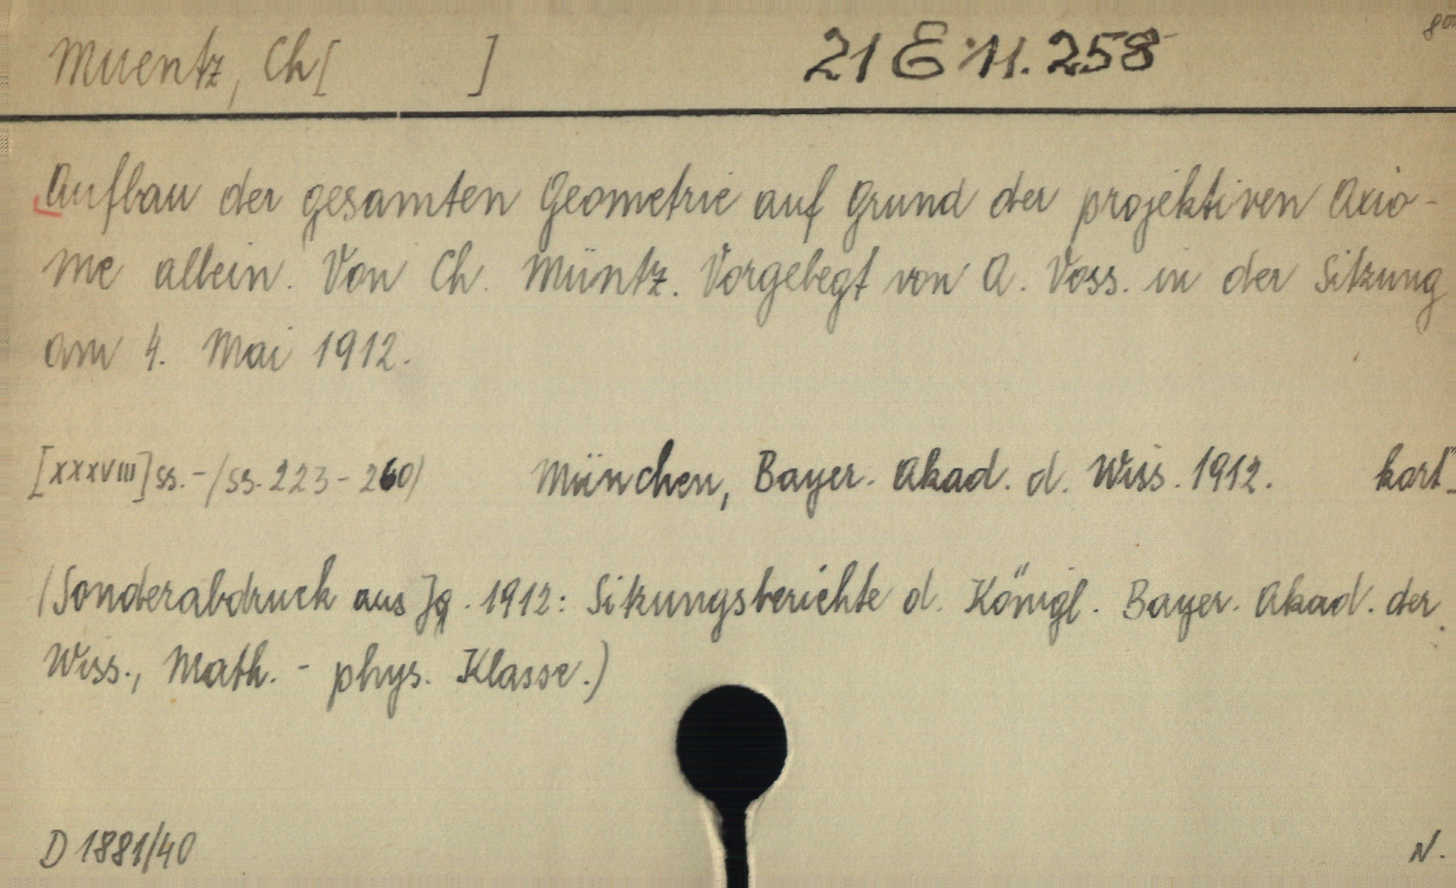 Muentz, Ch[ ] 21 E 11.258 80
Aufbau der gesamten Geometrie auf Grund der projektiven Axio-
me allein. Von Ch. Müntz. Vorgelegt von A. Voss. in der Sitzung
am 4. Mai 1912.
[XXXVIII] ss. - /ss. 223 - 260/ München, Bayer. Akad. d. Wiss. 1912. kart.
/Sonderabdruck aus Jg. 1912: Sitzungsberichte d. Königl. Bayer. Akad. der
Wiss., Math. - phys. Klasse.)
D 1881/40 N.